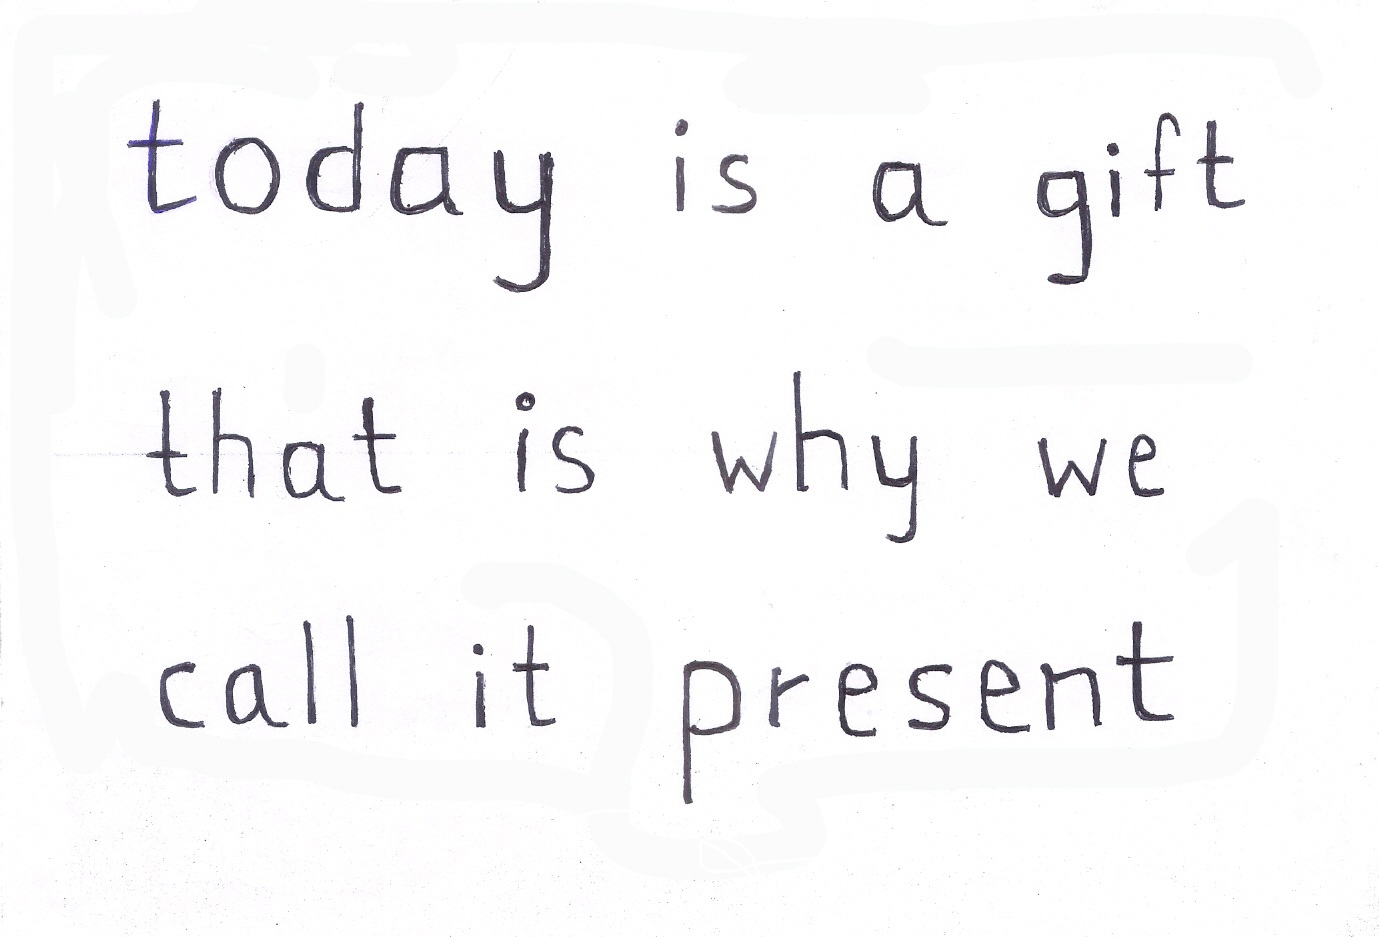 today is a gift
that is why we
call it present